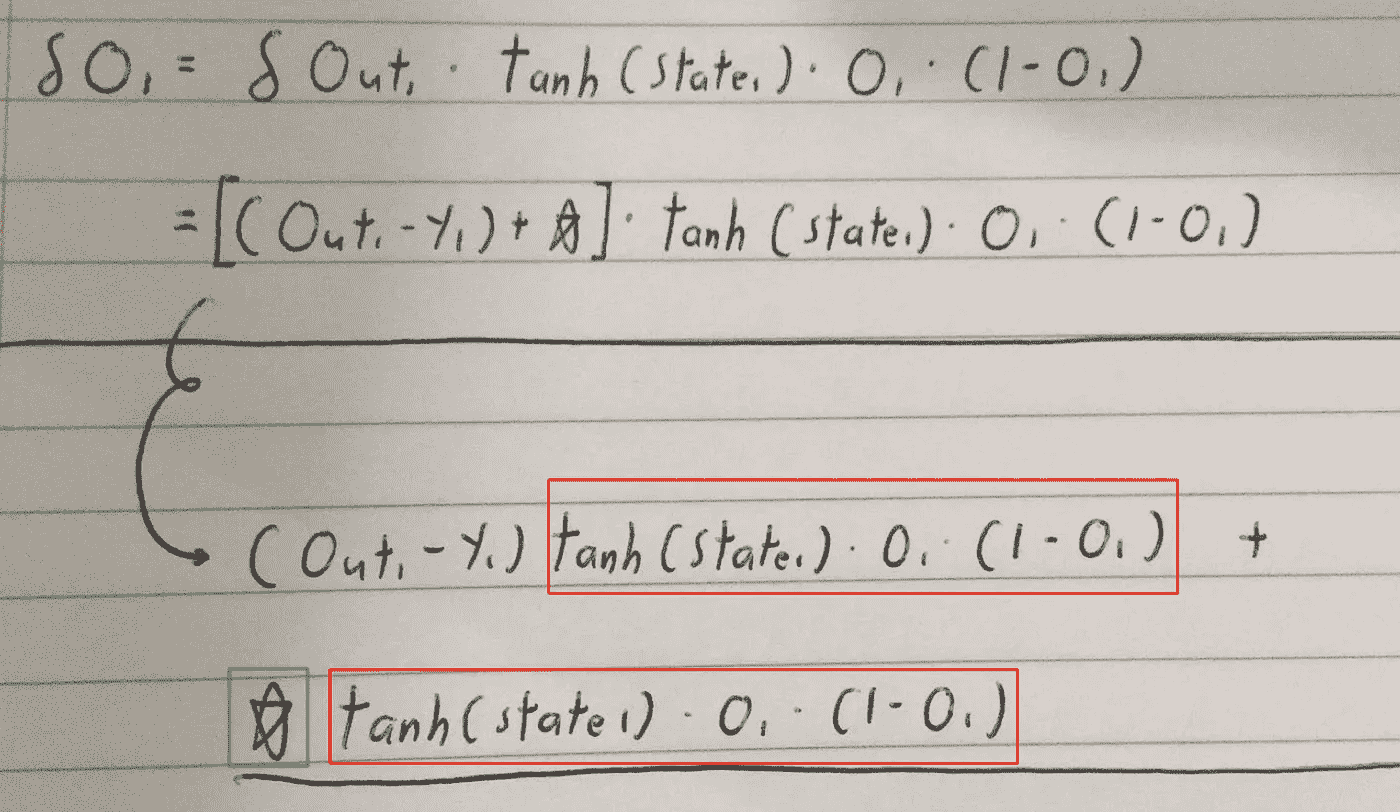 δO₁ = δOut₁ · tanh(state₁) · O₁ · (1 - O₁)
= [(Out₁ - Y₁) + ☆] · tanh(state₁) · O₁ · (1 - O₁)
(Out₁ - Y₁) tanh(state₁) · O₁ · (1 - O₁) +
☆ tanh(state₁) · O₁ · (1 - O₁)